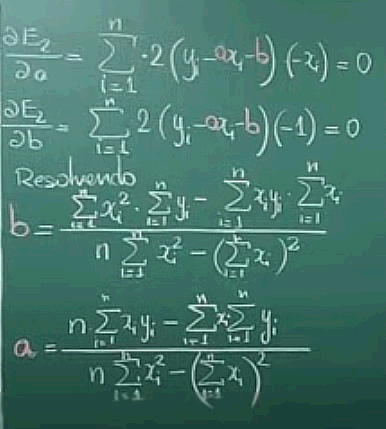 ∂E₂/∂a = ∑_{i=1}^{n} · 2 (yᵢ - axᵢ - b) (-xᵢ) = 0
∂E₂/∂b = ∑_{i=1}^{n} 2 (yᵢ - axᵢ - b) (-1) = 0
Resolvendo
b = (∑_{i=1}^{n} xᵢ² · ∑_{i=1}^{n} yᵢ - ∑_{i=1}^{n} xᵢyᵢ · ∑_{i=1}^{n} xᵢ) / (n ∑_{i=1}^{n} xᵢ² - (∑_{i=1}^{n} xᵢ)²)
a = (n ∑_{i=1}^{n} xᵢyᵢ - ∑_{i=1}^{n} xᵢ ∑_{i=1}^{n} yᵢ) / (n ∑_{i=1}^{n} xᵢ² - (∑_{i=1}^{n} xᵢ)²)